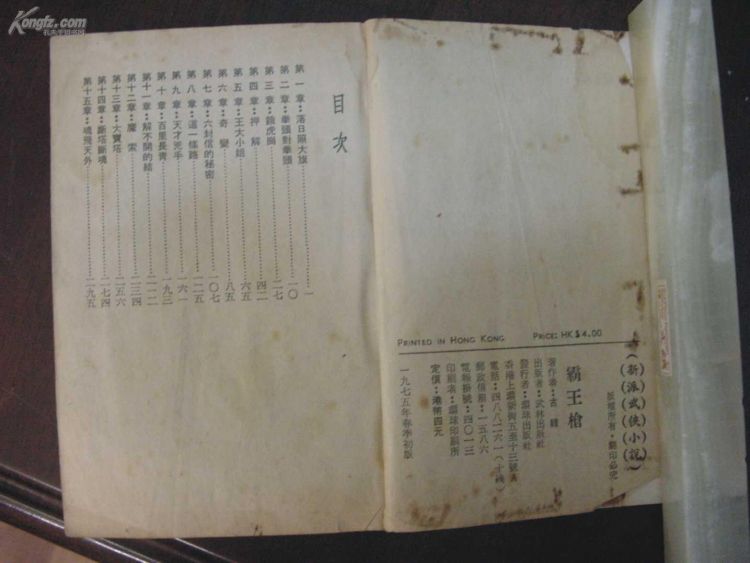 Kongfz.com
孔夫子旧书网
(新派武俠小說)
版權所有·翻印必究
霸王槍
著作者：古龍
出版者：武林出版社
發行者：環球出版社
香港上環新街五至十三號A
電話：四八八二六一(十綫)
郵政信箱：一五八六
電報掛號：四〇一三
印刷者：環球印刷所
定價：港幣四元
一九七五年春季初版
PRINTED IN HONG KONG PRICE: HK $4.00
目次
第一章：落日照大旗 一
第二章：拳頭對拳頭 一〇
第三章：餓虎崗 二七
第四章：押解 四二
第五章：王大小姐 六五
第六章：奇變 八五
第七章：六封信的秘密 一〇七
第八章：這一條路 一二五
第九章：天才兇手 一六一
第十章：百里長青 一九三
第十一章：解不開的結 二一二
第十二章：魔索 二三四
第十三章：大寶塔 二五六
第十四章：斷塔斷魂 二七四
第十五章：魂飛天外 二九五